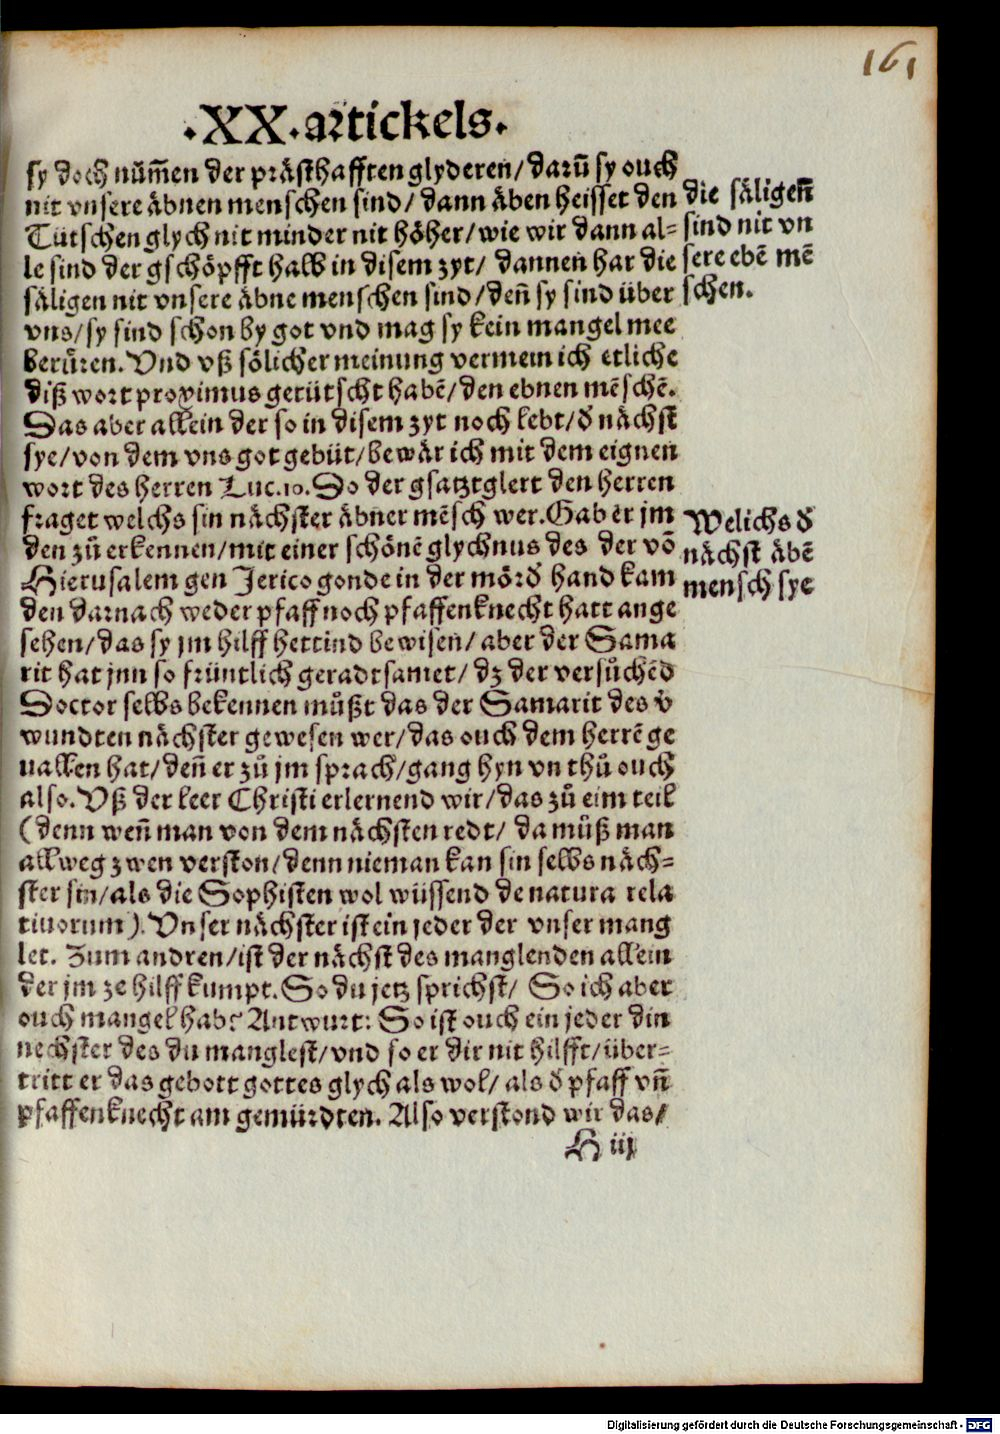 161
.XX.artickels.
sy doch nüm̃en der prästhafften glyderen/darũ sy ouch
nit vnsere äbnen menschen sind/dann äben heisset den
Tütschen glych nit minder nit höher/wie wir dann al-
le sind der gschöpfft halb in disem zyt/ dannen har die
säligen nit vnsere äbne menschen sind/deñ sy sind über
vns/sy sind schon by got vnd mag sy kein mangel mee
berůren. Vnd vß sölicher meinung vermein ich etliche
diß wort proximus getütscht habē/den ebnen mēschē.
Das aber allein der so in disem zyt noch lebt/ď nächst
sye/von dem vns got gebüt/bewär ich mit dem eignen
wort des herren Luc.10. Do der gsatztglert den herren
fraget welchs sin nächster äbner mēsch wer. Gab er jm
den zů erkennen/mit einer schönē glychnus des der vō
Hierusalem gen Jerico gonde in der mörď hand kam
den darnach weder pfaff noch pfaffenknecht hatt ange
sehen/das sy jm hilff hettind bewisen/ aber der Sama
rit hat jnn so früntlich geradtsamet/ dz der versůchēd
Doctor selbs bekennen müßt das der Samarit des v̈
wundten nächster gewesen wer/das ouch dem herrē ge
uallen hat/deñ er zů jm sprach/gang hyn vn thů ouch
also. Vß der leer Christi erlernend wir/das zů eim teil
(denn weñ man von dem nächsten redt/ da můß man
allweg zwen verston/denn nieman kan sin selbs näch-
ster sin/als die Sophisten wol wüssend de natura rela
tiuorum). Vnser nächster ist ein jeder der vnser mang
let. Zum andren/ist der nächst des manglenden allein
der jm ze hilff kumpt. So du jetz sprichst/ So ich aber
ouch mangel hab? Antwurt: So ist ouch ein jeder din
nechster des du manglest/vnd so er dir nit hilfft/über-
tritt er das gebott gottes glych als wol/ als ď pfaff vñ
pfaffenknecht am gemürdten. Also verstond wir das/
H iij
die säligeñ
sind nit vn
sere ebē mē
schen.
Welichs ď
nächst äbē
mensch sye
Digitalisierung gefördert durch die Deutsche Forschungsgemeinschaft - DFG